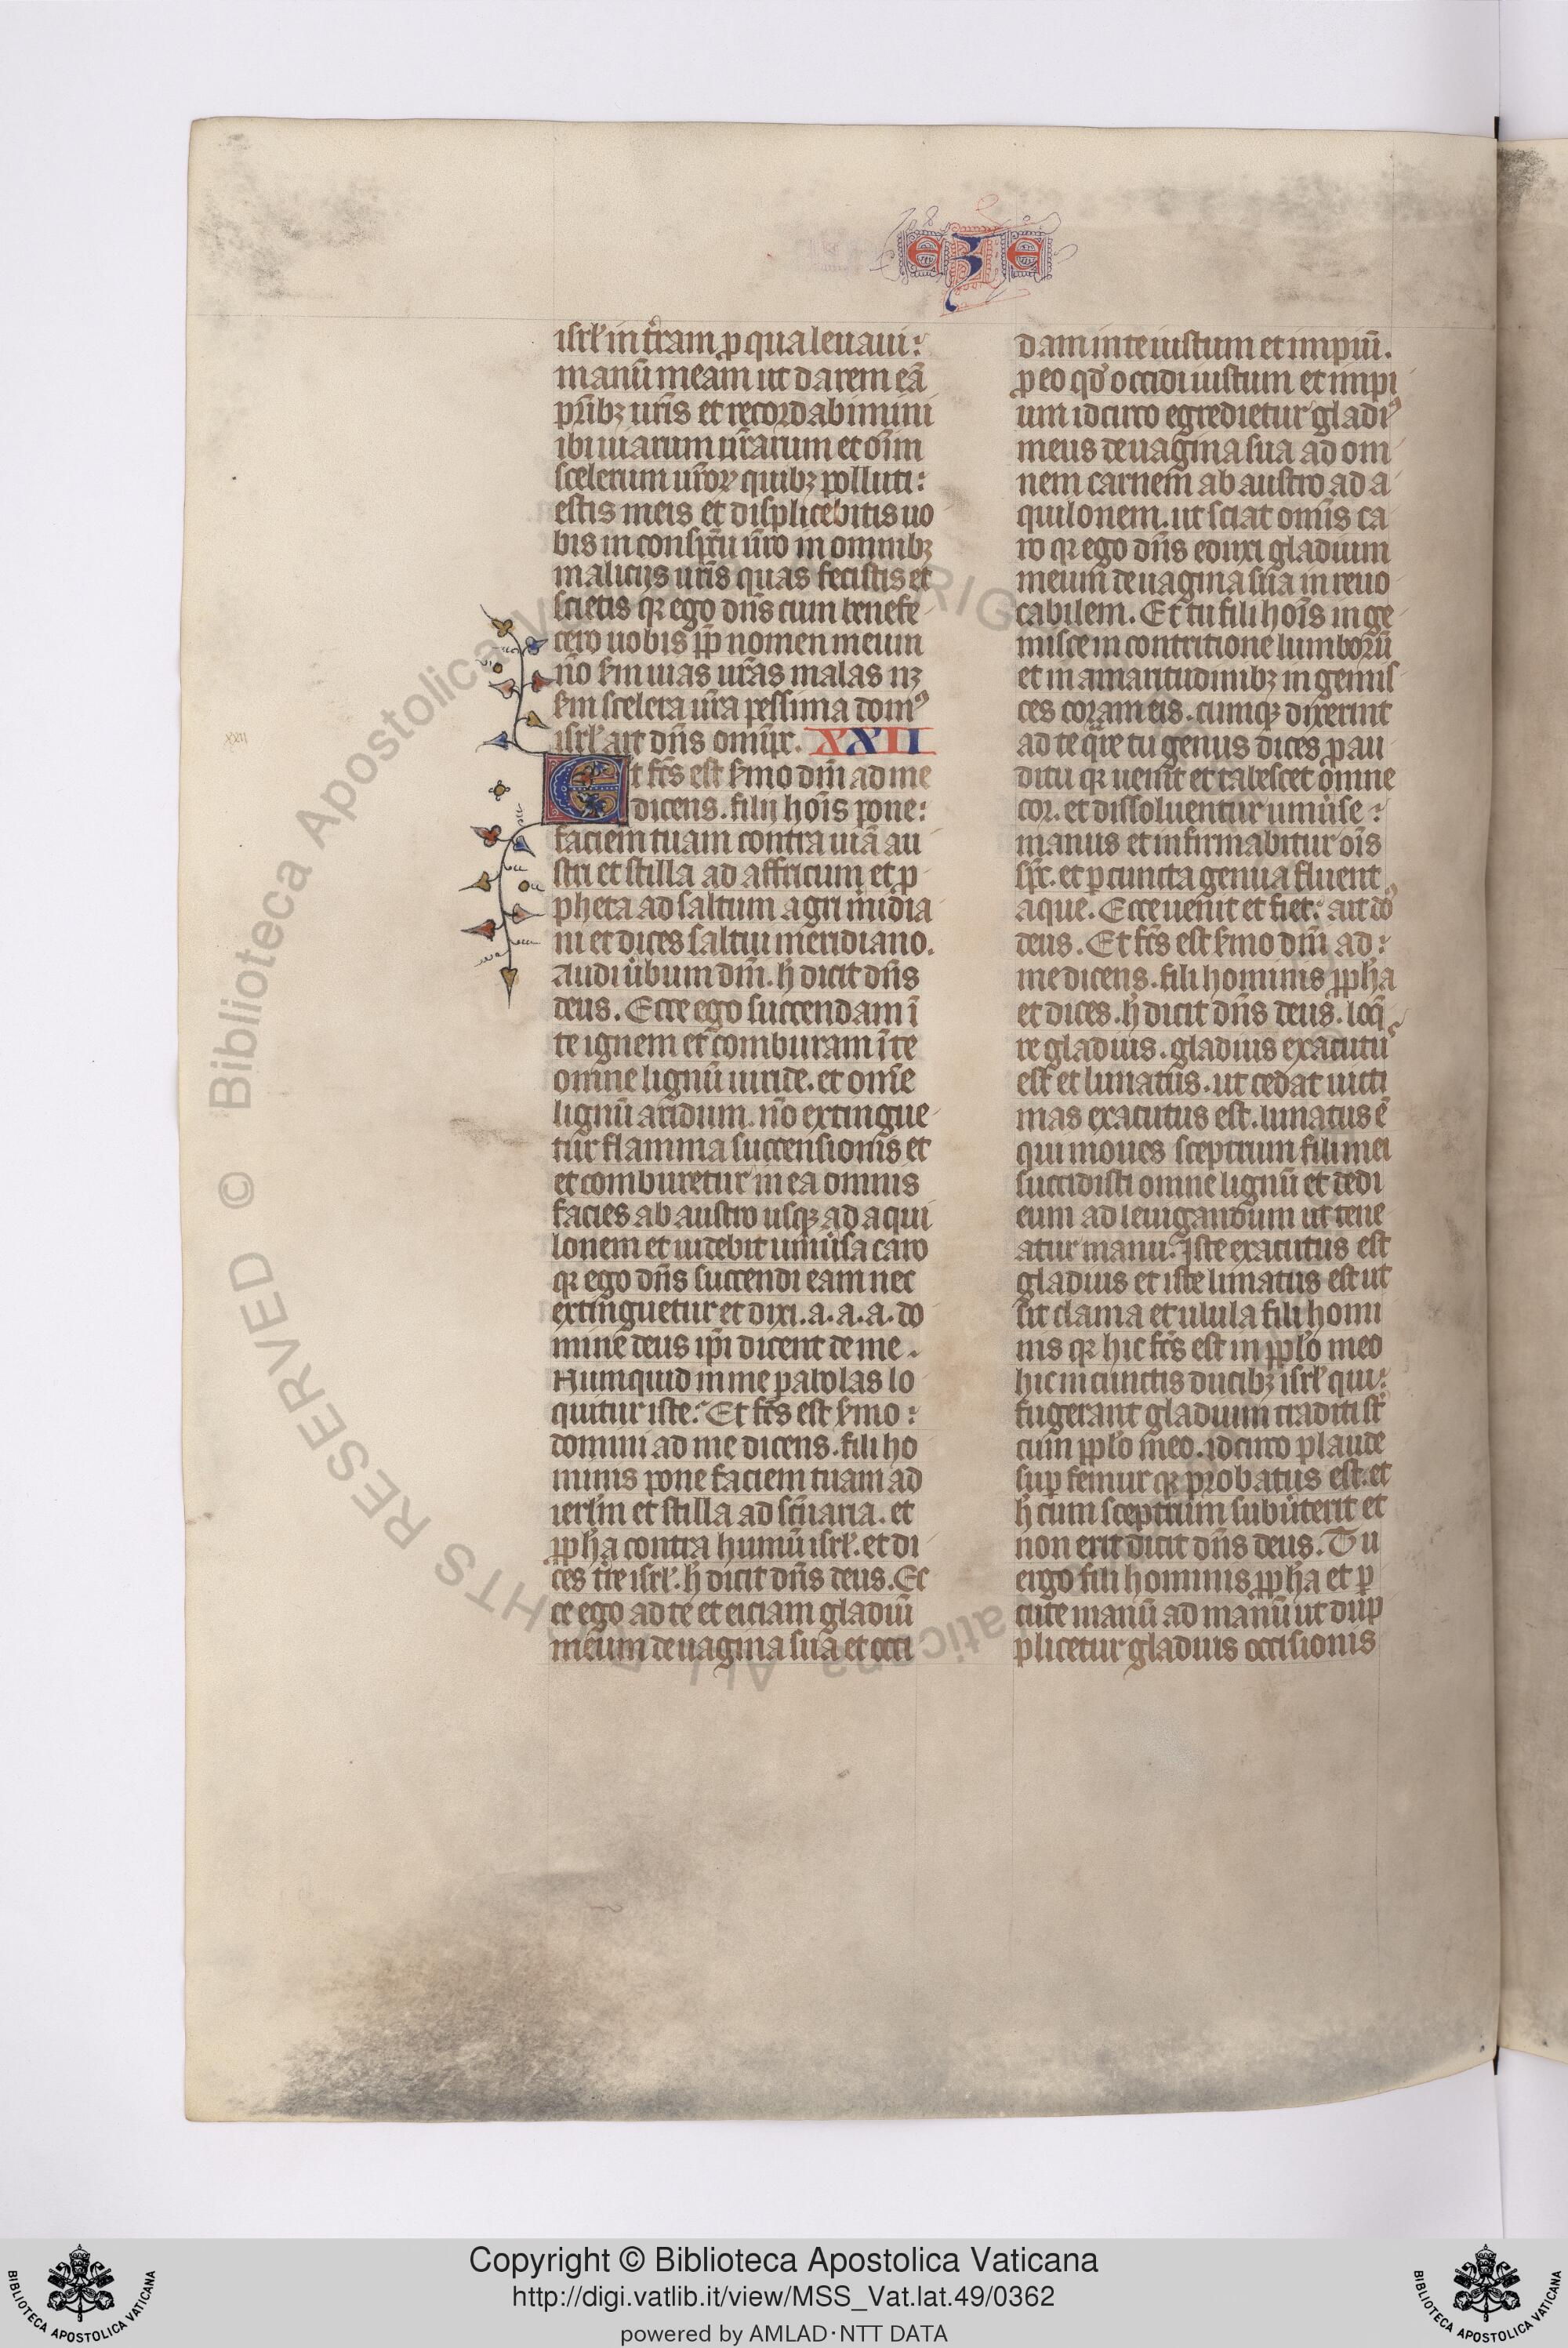 EZE
isrł in t̃ram p qua leuaui:
manũ meam ut darem eã
pr̃ibꝫ ur̃is et recordabimini
ibi uiarum ur̃arum et oĩm
scelerum ur̃oꝝ quibꝫ polluti:
estis meis et displicebitis uo
bis in conspc̃u ur̃o in omnibꝫ
malicijs ur̃is quas fecistis et
scietis qꝛ ego dñs cum benefe-
cero uobis pp̃ nomen meum
nõ scm̃ uias ur̃as malas nꝫ
scm̃ scelera ur̃a pessima domꝰ
isrł ait dñs omp̃c. XXII
Et fc̃s est s̃mo dñi ad me
dicens. filij hoĩs pone:
faciem tuam contra uiã au-
stri et stilla ad affricum et p-
pheta ad saltum agri midia-
ni et dices saltui meridiano.
audi ũbum dñi. h̃ dicit dñs
deus. Ecce ego succendam ĩ
te ignem et comburam ĩ te
omne lignũ uiride. et om̃e
lignũ aridum. nõ extingue-
tur flamma succensionis et
et comburetur in ea omnis
facies ab austro usqꝫ ad aqui
lonem et uidebit uniũsa caro
qꝛ ego dñs succendi eam nec
extinguetur et dixi. a. a. a. do-
mine deus ip̃i dicent de me.
Numquid in me parolas lo-
quitur iste. Et fc̃s est s̃mo:
domini ad me dicens. fili ho
minis pone faciem tuam ad
ierłm et stilla ad sc̃uaria. et
ꝓph̃a contra humũ isrł. et di-
ces t̃re isrł. h̃ dicit dñs deus. Ec
ce ego ad te et eiciam gladiũ
meum de uagina sua et occi
dam in te iustum et impiũ.
p eo qđ occidi iustum et impi
um idcirco egredietur gladiꝰ
meus de uagina sua ad om-
nem carnem ab austro ad a-
quilonem. ut sciat omĩs ca-
ro qꝛ ego dñs eduxi gladium
meum de uagina sua inreuo-
cabilem. Et tu fili hoĩs inge-
misce in contritione lumborũ
et in amaritudinibꝫ ingemis-
ces coram eis. cumqꝫ dixerint
ad te qr̃e tu gemis dices p au-
ditu qꝛ uenit et tabescet omne
cor. et dissoluentur uniũse:
manus et infirmabitur oĩs
sp̃c. et p cuncta genua fluent
aque. Ecce uenit et fiet: ait dõ
deus. Et fc̃s est s̃mo dñi ad:
me dicens. fili hominis ꝓph̃a
et dices. h̃ dicit dñs deus. loq̃
re gladius. gladius exacutũ
est et limatus. ut cedat uicti
mas exacutus est. limatus ẽ
qui moues sceptrum fili mei
succidisti omne lignũ et dedi
eum ad leuigandum ut tene-
atur manu. Iste exacutus est
gladius et iste limatus est ut
sit clama et ulula fili homi
nis qꝛ hic fc̃s est in pplo meo
hic in cunctis ducibꝫ isrł qui:
fugerant gladium traditi st̃
cum pplo meo. idcirco plaude
sup femur qꝛ probatus est. et
h̃ cum sceptrum subũterit et
non erit dicit dñs deus. Tu
ergo fili hominis ꝓph̃a et p
cute manũ ad manũ ut dup
plicetur gladius occisionis
xxii
© Biblioteca Apostolica Vaticana ALL RIGHTS RESERVED
Copyright © Biblioteca Apostolica Vaticana
http://digi.vatlib.it/view/MSS_Vat.lat.49/0362
powered by AMLAD·NTT DATA
BIBLIOTECA APOSTOLICA VATICANA
BIBLIOTECA APOSTOLICA VATICANA